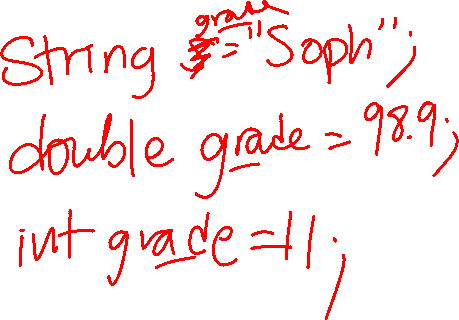 String grade = "Soph";
double grade = 98.9;
int grade = 11;